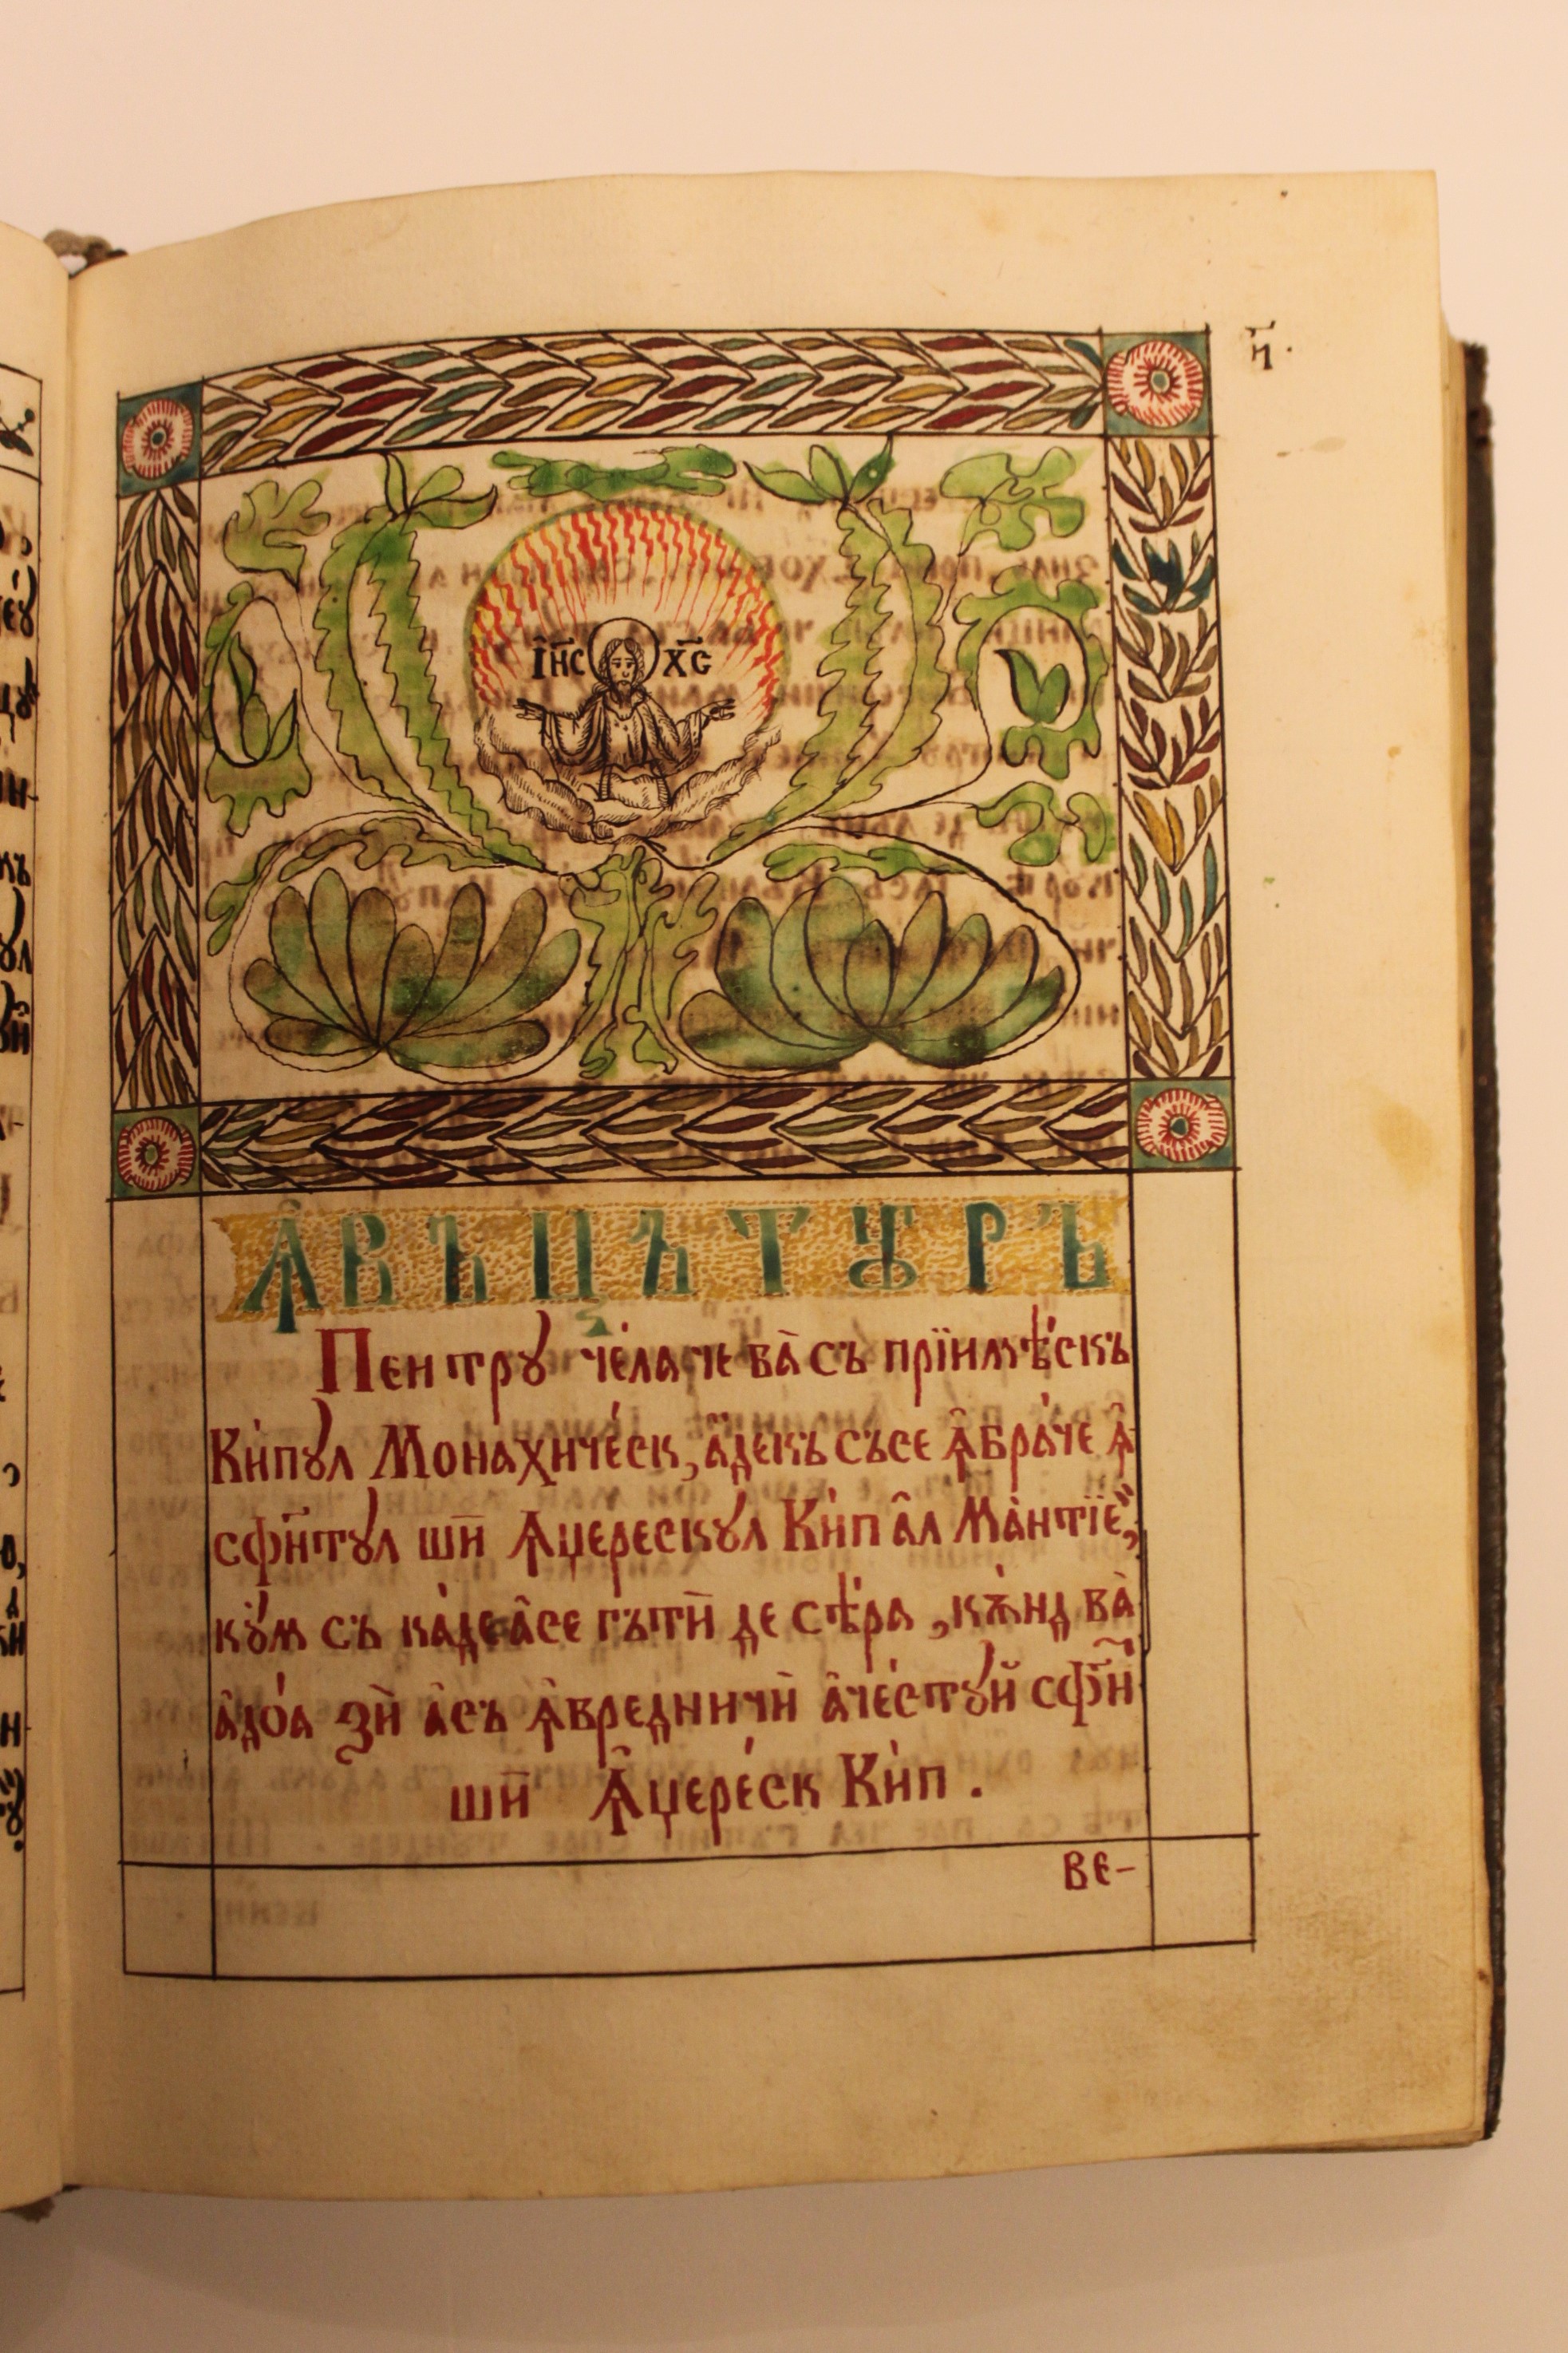 н҃.
І҆и҃с Хс҃
Ꙟ҆ВЪЦЪТꙊРЪ
Пентрꙋ че́лаче ва̀ съ прїимѣ́скъ
Ки́пꙋл Мона́хиче́ск, а҆́декъ съсе ꙟ҆бра́че ꙟ҆
сфи҃тꙋл шѝ Ꙟцерескꙋл Ки́п а҆л Ма́нтїе́й,
кꙋ́м съ ка́де а҆се гътѝ де сѣ́ра, кѫ́нд ва̀
а҆до́а зѝ а҆съ ꙟ҆вредничѝ а҆че́стꙋй сфи҃
шѝ Ꙟ҆цере́ск Ки́п.
ве-